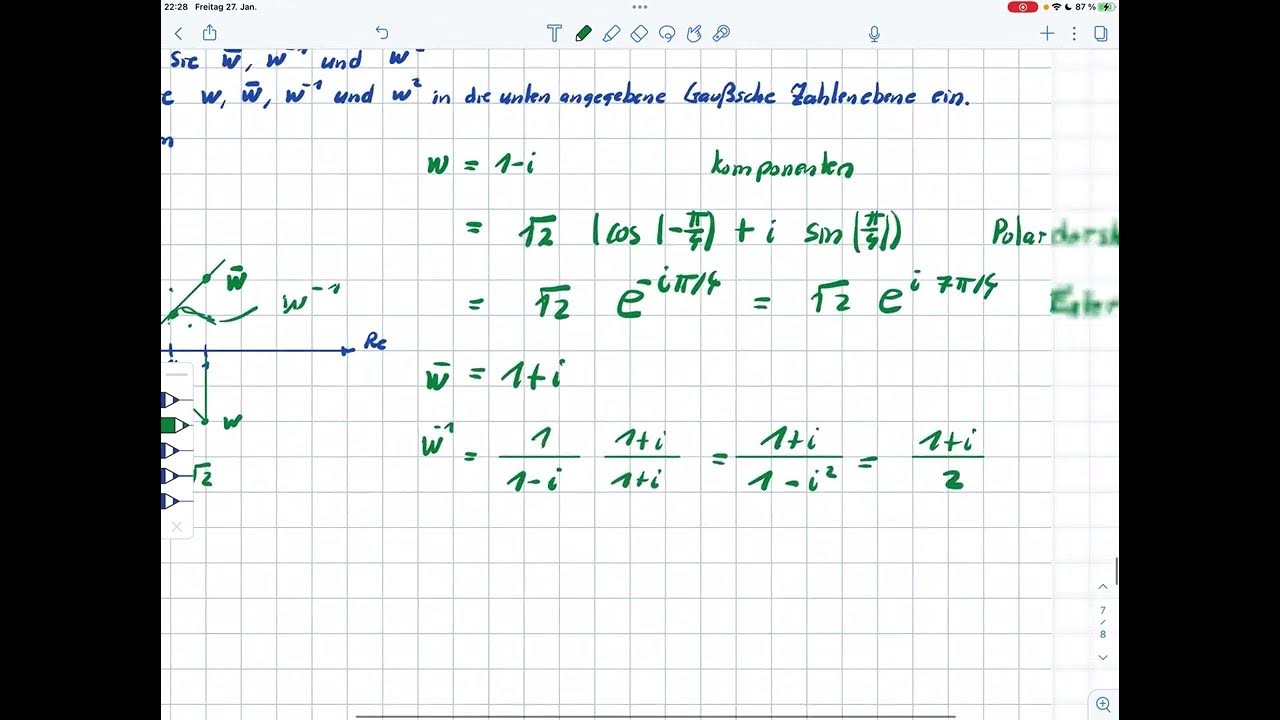 22:28 Freitag 27. Jan.
87 %
Sie w̄, w⁻¹ und w
w, w̄, w⁻¹ und w² in die unten angegebene Gaußsche Zahlenebene ein.
w = 1-i Komponenten
= √2 (cos(-π/4) + i sin(π/4)) Polar
= √2 e^{-iπ/4} = √2 e^{i 7π/4} Euler
w̄
w⁻¹
Re
w
√2
w̄ = 1+i
w⁻¹ = \frac{1}{1-i} \frac{1+i}{1+i} = \frac{1+i}{1-i²} = \frac{1+i}{2}
7
/
8